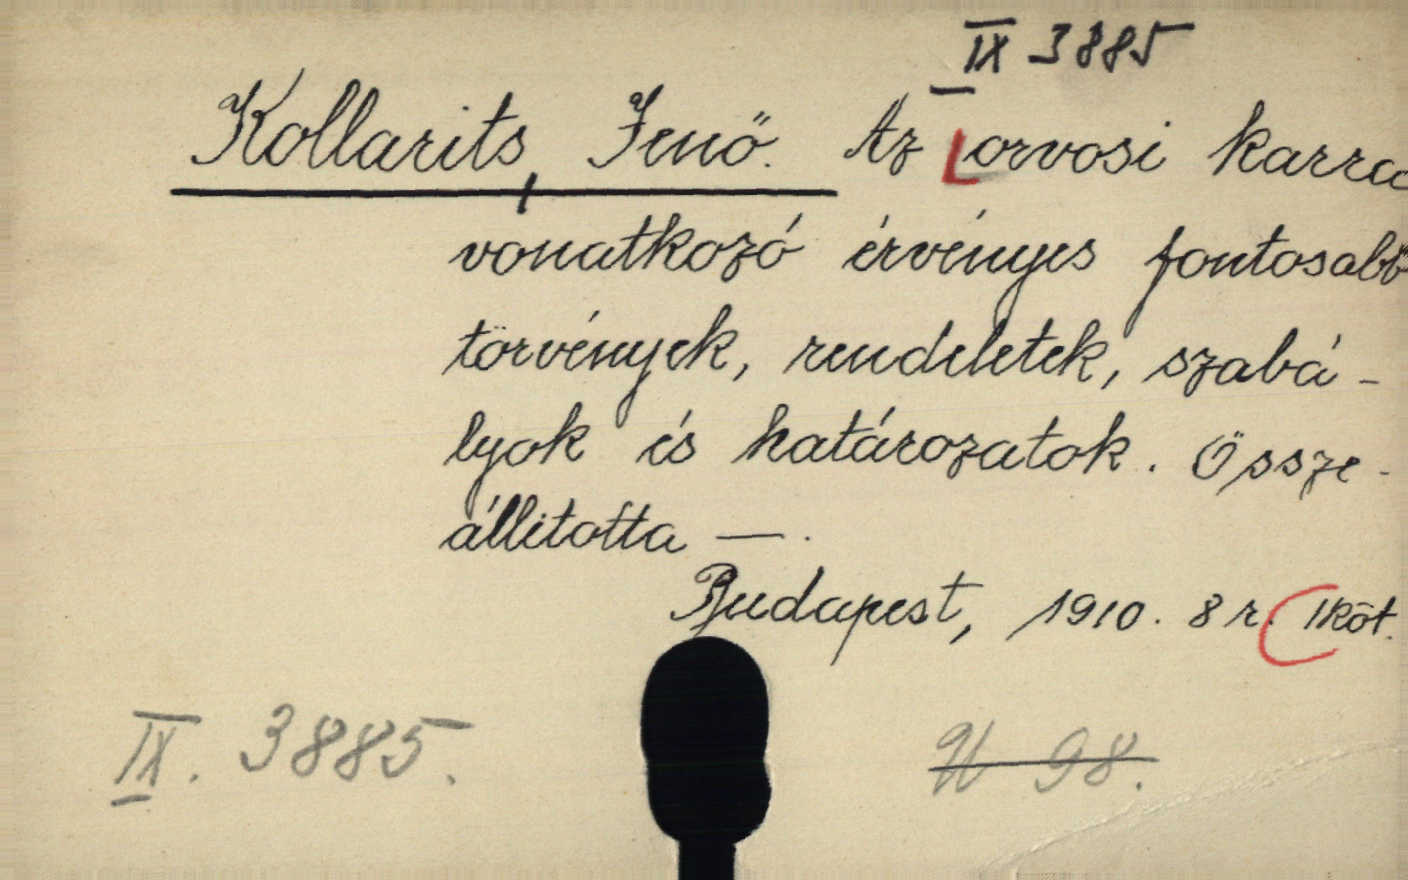 IX 3885
Kollarits, Jenő. Az orvosi karra
vonatkozó érvényes fontosabb
törvények, rendeletek, szabá-
lyok és határozatok. Össze-
állitotta —.
Budapest, 1910. 8 r. 1 köt.
IX. 3885.
U 98.